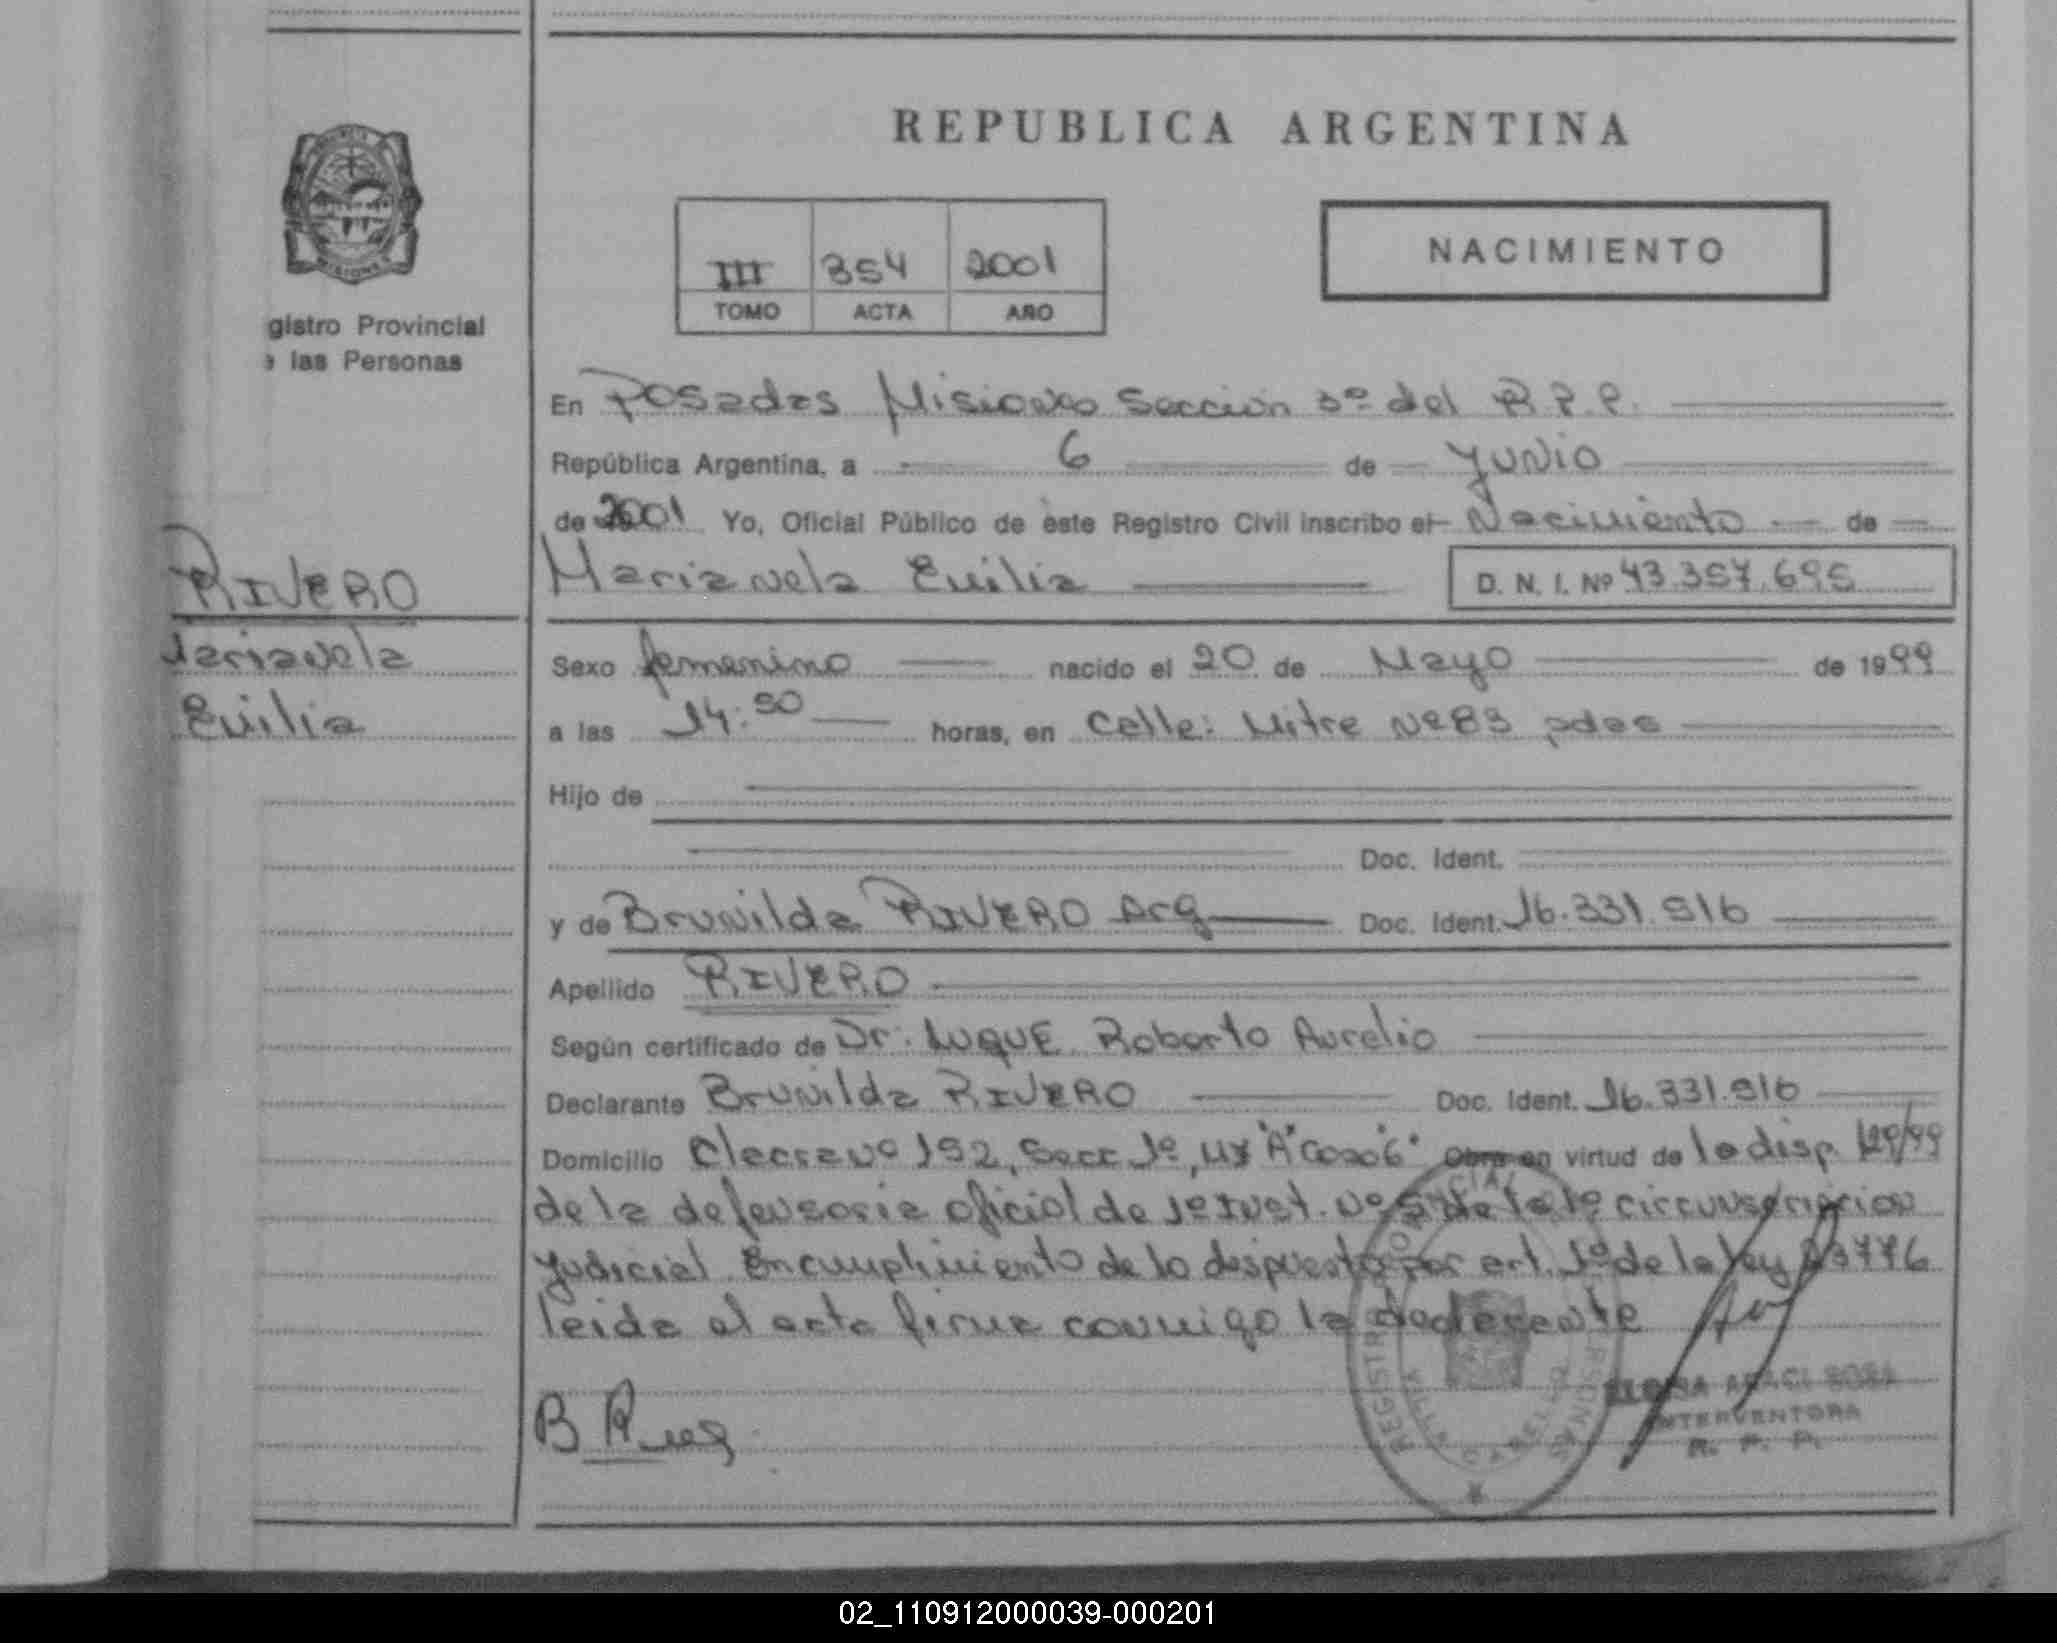 REPUBLICA ARGENTINA
NACIMIENTO
III 354 2001
TOMO ACTA AÑO
gistro Provincial
e las Personas
En Posadas Misiones Sección 3º del R.P.P.
República Argentina, a 6 de Junio
de 2001 Yo, Oficial Público de este Registro Civil inscribo el Nacimiento de
Marianela Emilia D. N. I. Nº 43.357.695
RIVERO
Marianela
Emilia
Sexo femenino nacido el 20 de Mayo de 1999
a las 14:50 horas, en calle: Mitre Nº 83 pdas
Hijo de
Doc. Ident.
y de Brunilda RIVERO Arg Doc. Ident. 16.331.916
Apellido RIVERO
Según certificado de Dr: LUQUE Roberto Aurelio
Declarante Brunilda RIVERO Doc. Ident. 16.331.916
Domicilio Chacra nº 192, Secc 1º, "A" "6" Obra en virtud de la disp. 129/99
de la defensoria oficial de 1º Inst. Nº 5 de la 1º circunscripcion
judicial. En cumplimiento de lo despuesto por art. 1º de la ley 23776
leida el acta firma conmigo la declarante
B R
REGISTRO PROVINCIAL PERSONAS
VILLA CABELLO
ARACI SOSA
INTERVENTORA
R. P. P.
02_110912000039-000201